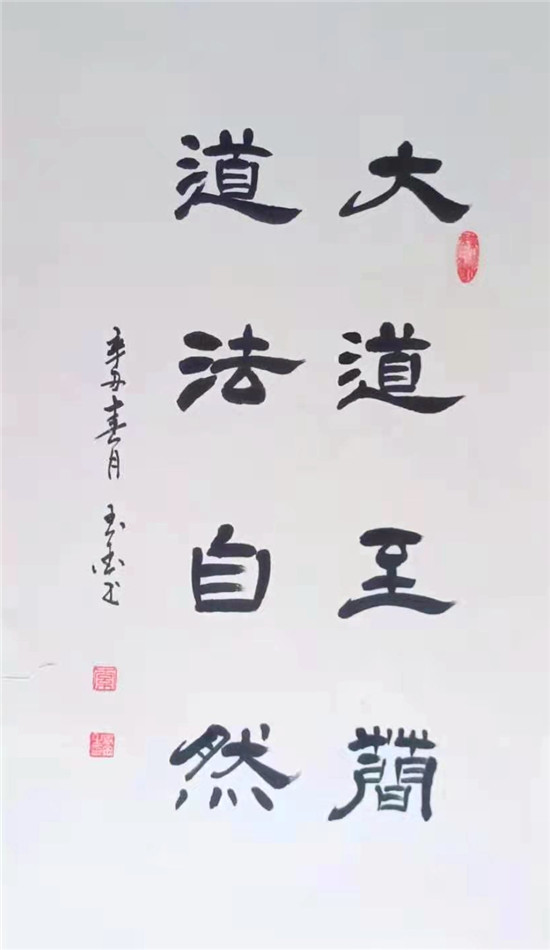 大道至簡
道法自然
辛丑春月 玉玺书